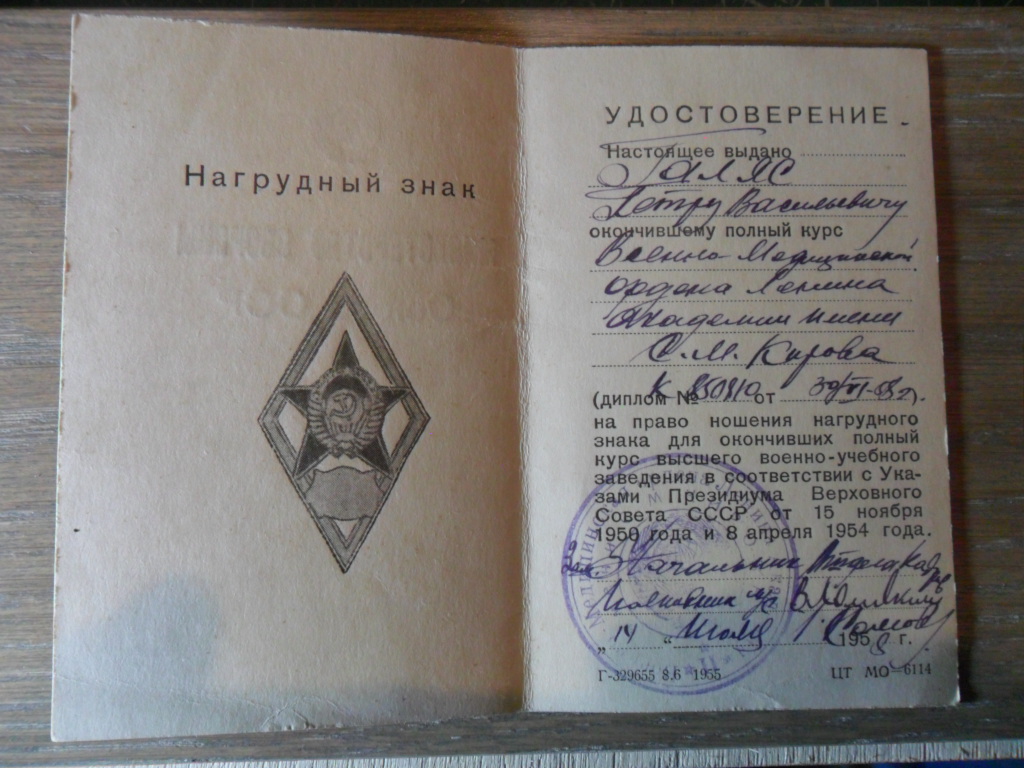 Нагрудный знак
УДОСТОВЕРЕНИЕ
Настоящее выдано
Галяс
Петру Васильевичу
окончившему полный курс
Военно-Медицинской
ордена Ленина
Академии имени
С.М. Кирова
(диплом № от г).
на право ношения нагрудного
знака для окончивших полный
курс высшего военно-учебного
заведения в соответствии с Ука-
зами Президиума Верховного
Совета СССР от 15 ноября
1950 года и 8 апреля 1954 года.
Зам. Начальник Отдела Кадров
Полковник м/с
„ 14 “ Июля 1958 г.
Г-329655 8.6 1955 ЦТ МО—6114